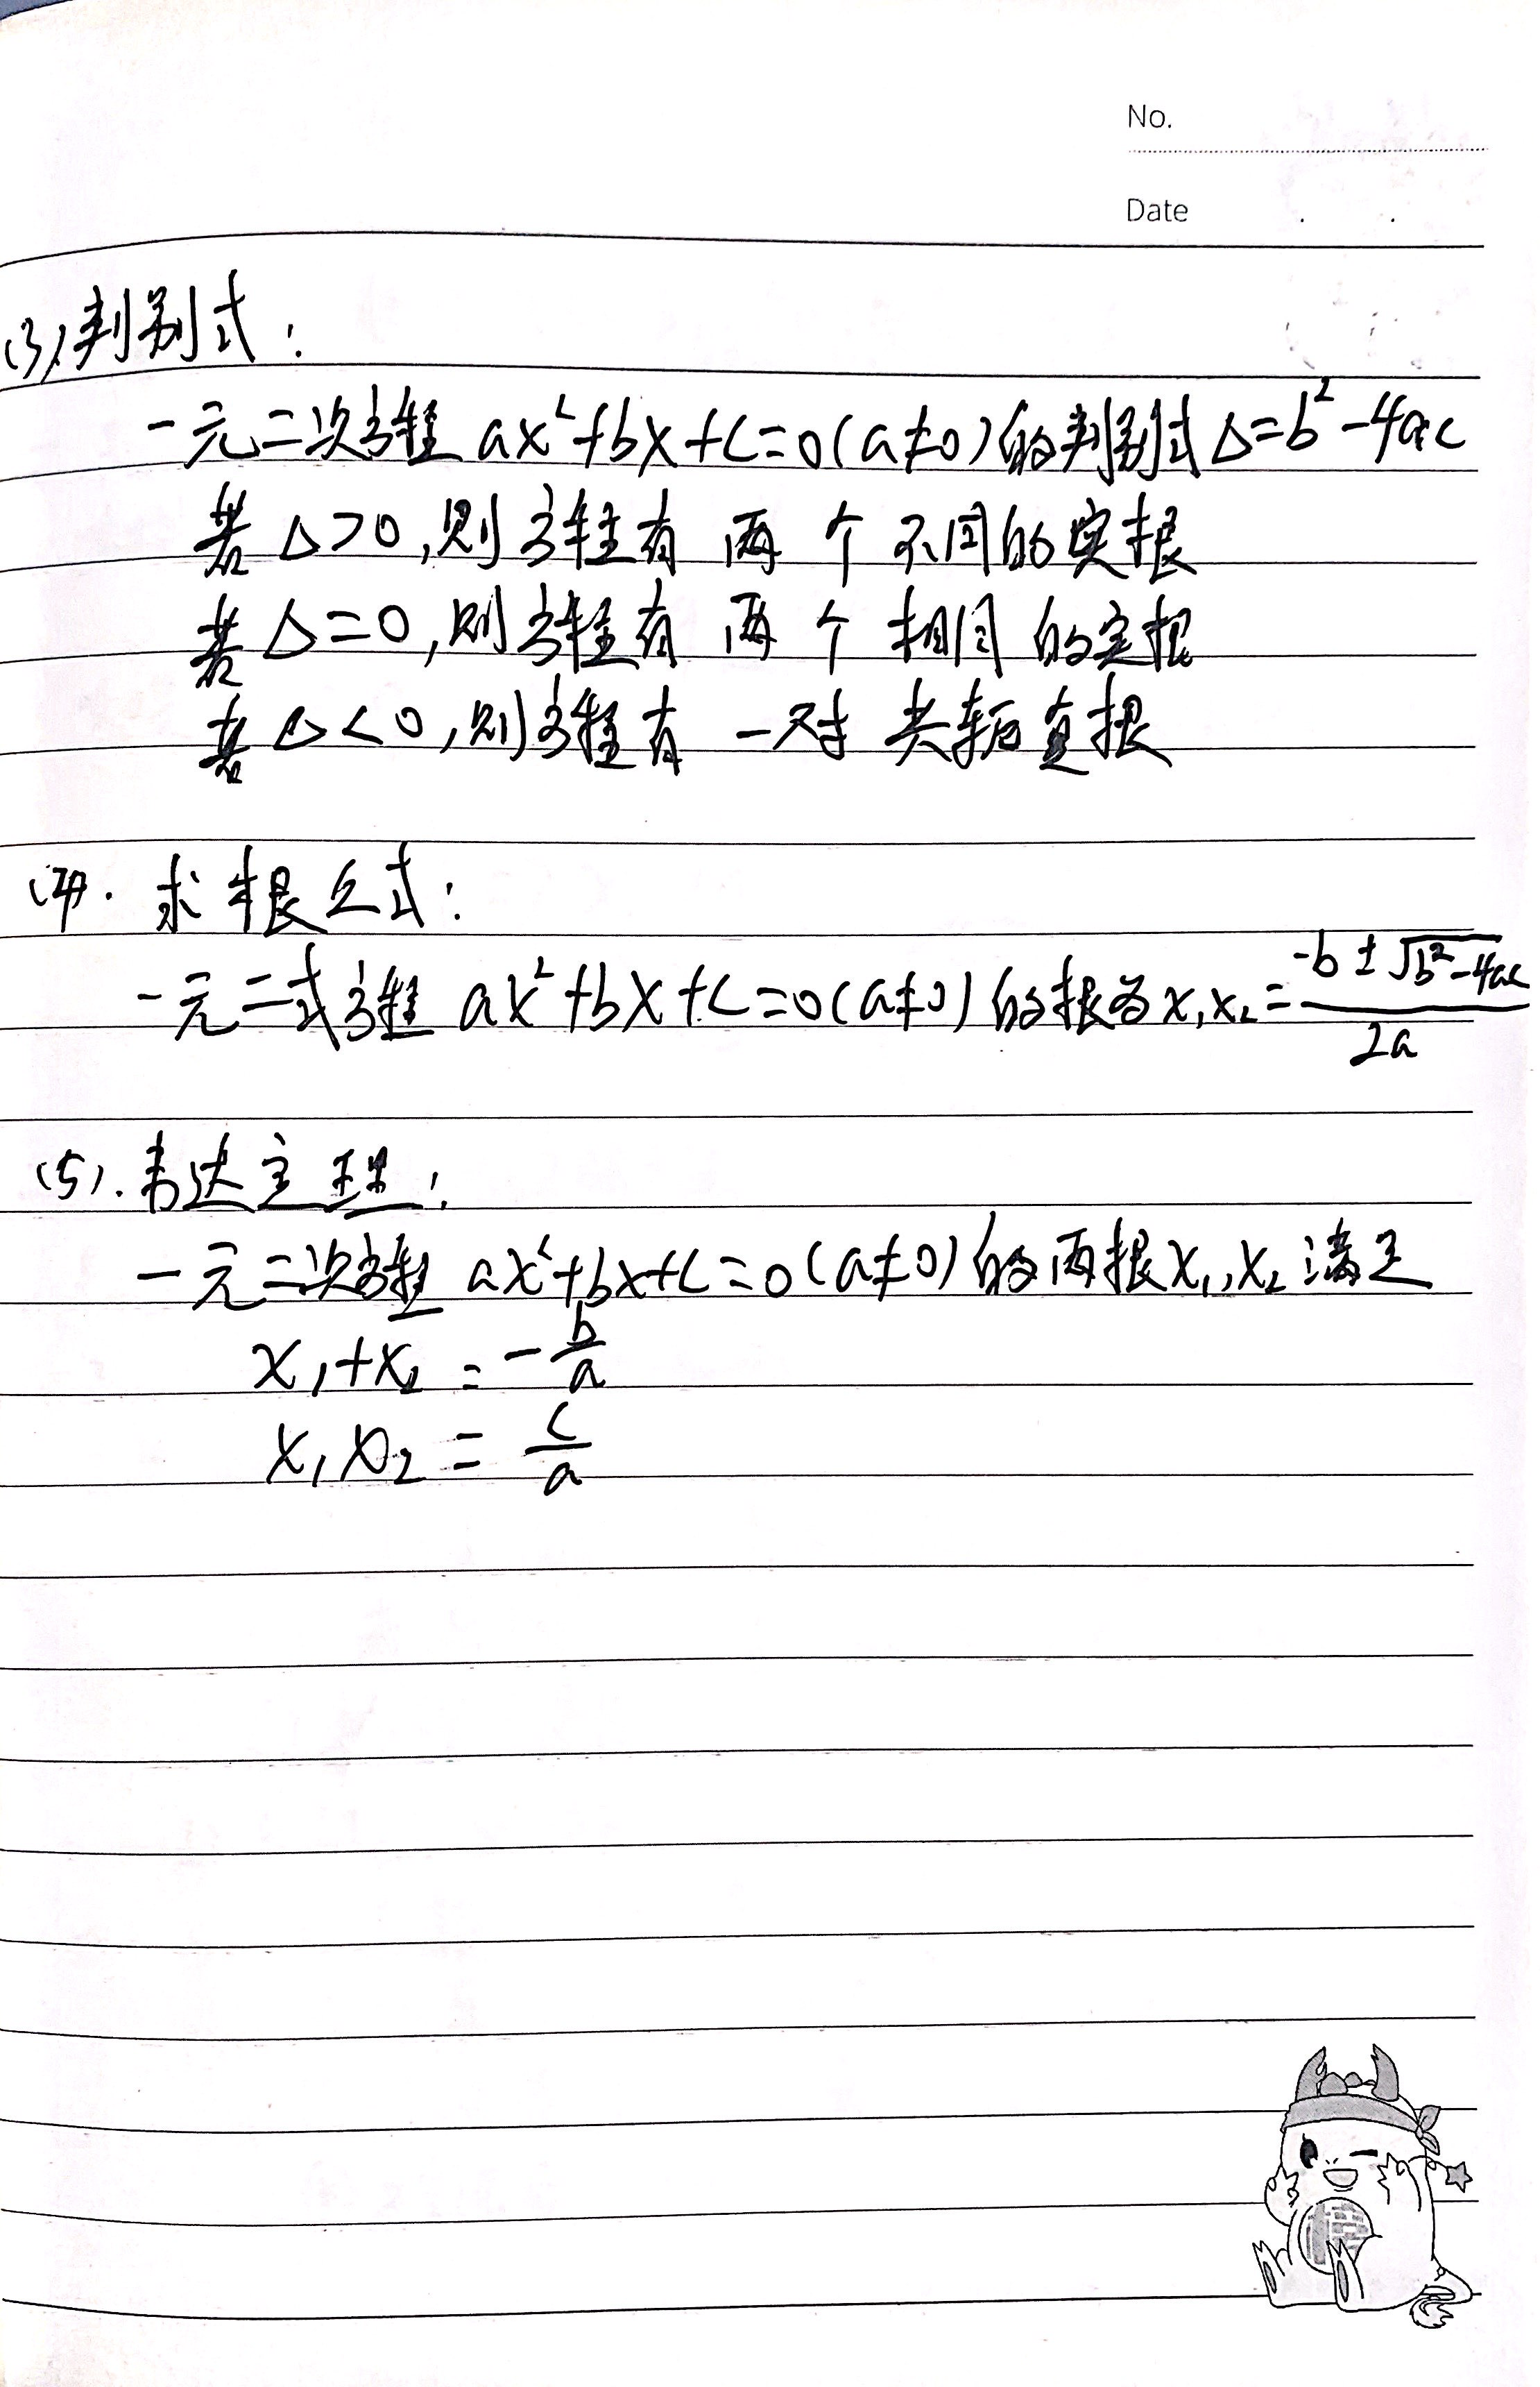 No.
Date . .
(3).判别式:
一元二次方程 ax²+bx+c=0(a≠0)的判别式Δ=b²-4ac
若Δ>0,则方程有 两个 不同的实根
若Δ=0,则方程有 两个 相同的实根
若Δ<0,则方程有 一对 共轭虚根
(4). 求根公式:
一元二式方程 ax²+bx+c=0(a≠0)的根为x₁x₂=(-b±√(b²-4ac))/2a
(5).韦达定理:
一元二次方程 ax²+bx+c=0(a≠0)的两根x₁,x₂满足
x₁+x₂=-b/a
x₁x₂=c/a